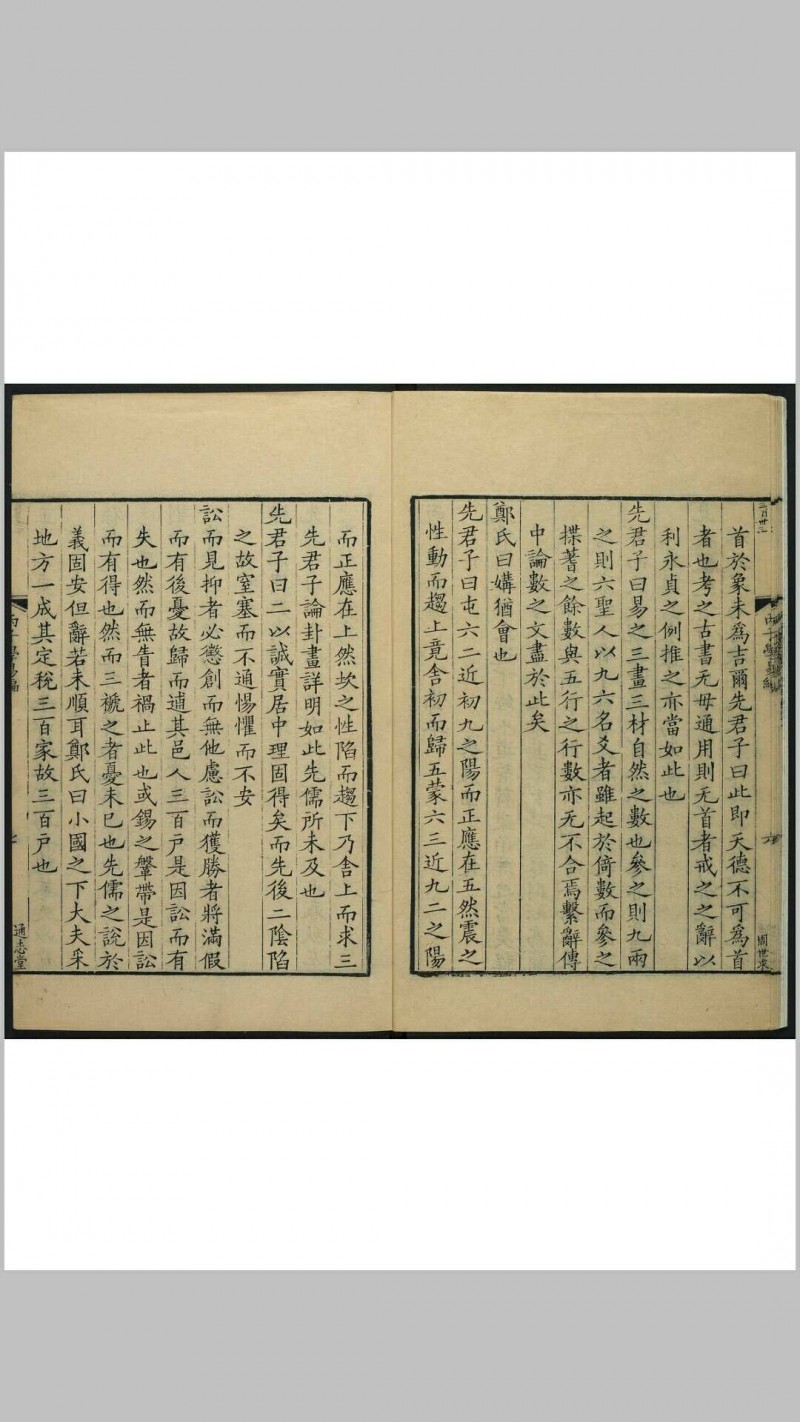 二百廿二
丙子學易編
六
周世來
首於象未爲吉爾先君子曰此即天德不可爲首
者也考之古書无毋通用則无首者戒之之辭以
利永貞之例推之亦當如此也
先君子曰易之三畫三材自然之數也參之則九兩
之則六聖人以九六名爻者雖起於倚數而參之
揲蓍之餘數與五行之行數亦无不合焉繫辭傳
中論數之文盡於此矣
鄭氏曰媾猶會也
先君子曰屯六二近初九之陽而正應在五然震之
性動而趨上竟舍初而歸五蒙六三近九二之陽
而正應在上然坎之性陷而趨下乃舍上而求三
先君子論卦畫詳明如此先儒所未及也
先君子曰二以誠實居中理固得矣而先後二陰陷
之故窒塞而不通惕懼而不安
訟而見抑者必懲創而無他慮訟而獲勝者將滿假
而有後憂故歸而逋其邑人三百戶是因訟而有
失也然而無眚者禍止此也或錫之鞶帶是因訟
而有得也然而三褫之者憂未已也先儒之說於
義固安但辭若未順耳鄭氏曰小國之下大夫采
地方一成其定稅三百家故三百戶也
丙子學易編
七
通志堂